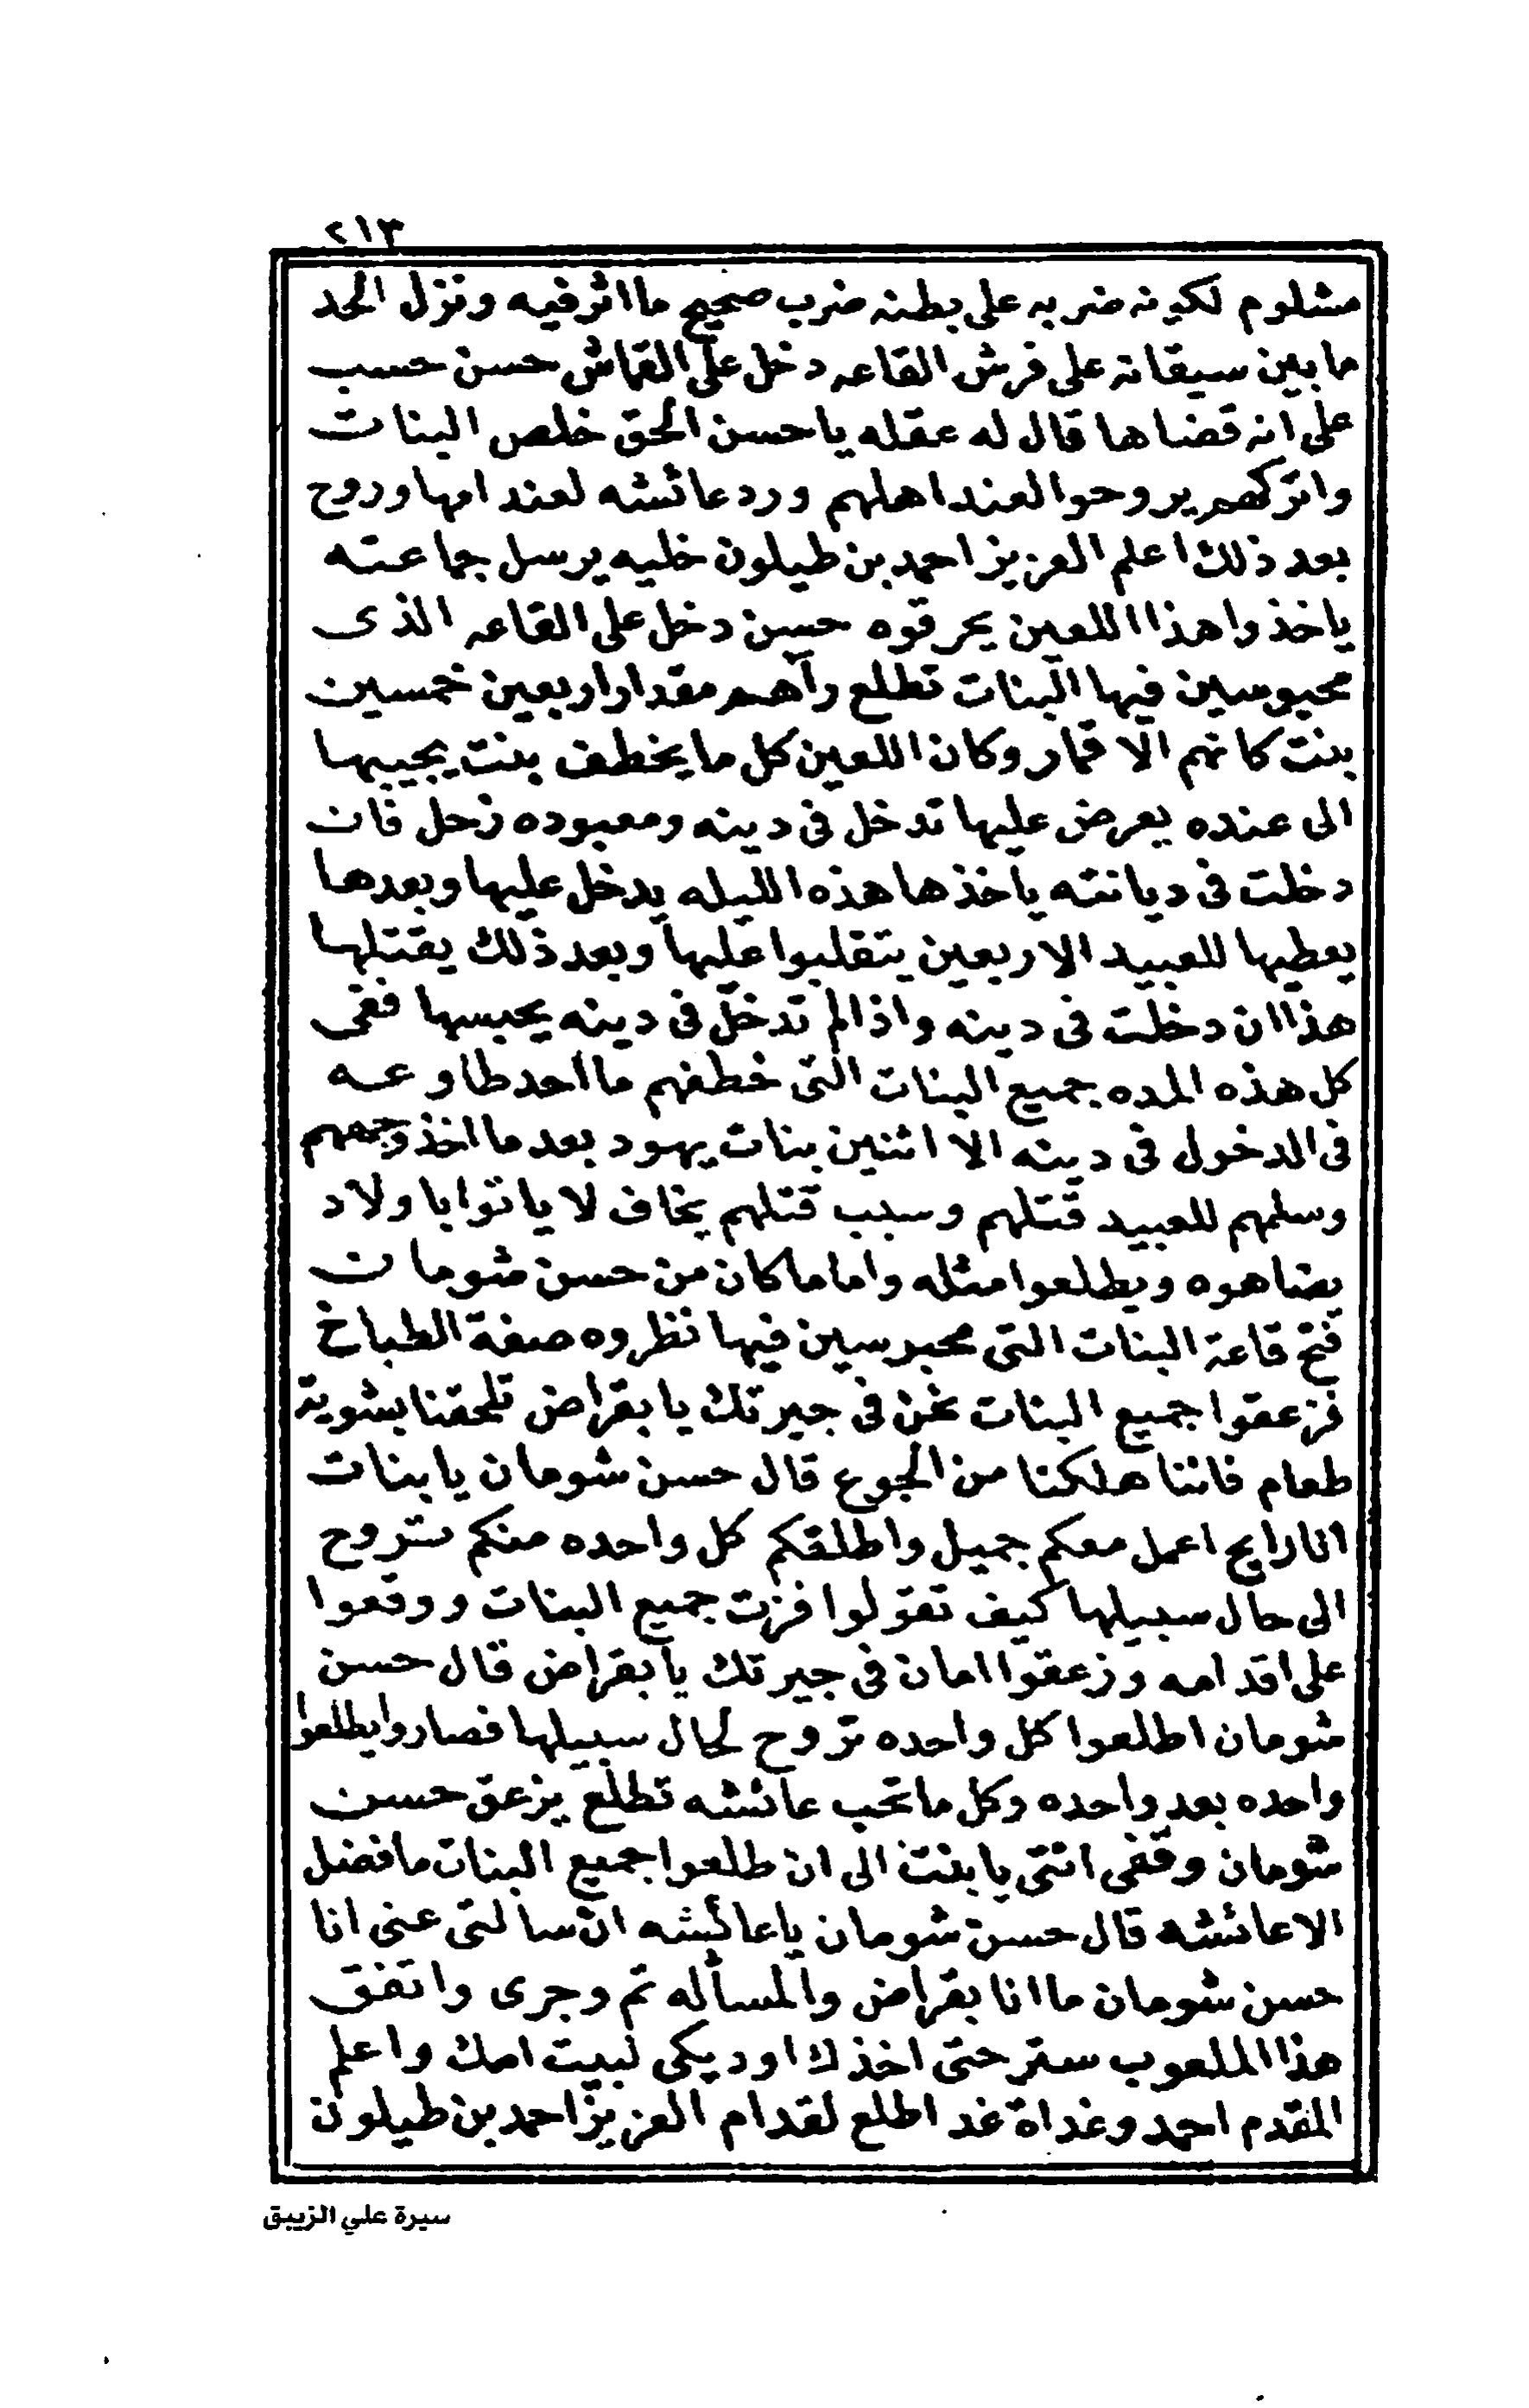 ٢١٣
مشلوم لكونه ضربه على بطنه ضرب صحيح ما اثر فيه ونزل الحد
ما بين سيقانه على فرش القاعه دخل على القماش حسن حسب
على انه قضاها قال له عقله يا حسن الحق خلص البنات
واتركهم يروحوا لعند اهلهم ورد عائشه لعند امها وروح
بعد ذلك اعلم العزيز احمد بن طيلون خليه يرسل جماعته
ياخذوا هذا اللعين يحرقوه حسن دخل على القاعه الذى
محبوسين فيها البنات تطلع رآهم مقدار اربعين خمسين
بنت كانهم الاقمار وكان اللعين كل ما يخطف بنت يجيبها
الى عنده يعرض عليها تدخل فى دينه ومعبوده زحل فان
دخلت فى ديانته ياخذها هذه الليله يدخل عليها وبعدها
يعطيها للعبيد الاربعين يتقلبوا عليها وبعد ذلك يقتلها
هذا ان دخلت فى دينه واذا لم تدخل فى دينه يحبسها ففى
كل هذه المده جميع البنات التى خطفهم ما احد طاوعه
فى الدخول فى دينه الا اثنين بنات يهود بعد ما اخذ وجههم
وسلمهم للعبيد قتلهم وسبب قتلهم يخاف لا ياتوا باولاد
يضاهوه ويطلعوا مثله واما ما كان من حسن شومان
فتح قاعة البنات التى محبوسين فيها نظروه صفة الطباخ
فزعقوا جميع البنات نحن فى جيرتك يا بقراض تلحقنا بشوية
طعام فاننا هلكنا من الجوع قال حسن شومان يا بنات
انا رايح اعمل معكم جميل واطلقكم كل واحده منكم تتروح
الى حال سبيلها كيف تقولوا فزت جميع البنات ووقعوا
على اقدامه وزعقوا امان فى جيرتك يا بقراض قال حسن
شومان اطلعوا كل واحده تروح لحال سبيلها فصاروا يطلعوا
واحده بعد واحده وكل ما تحب عائشه تطلع يزعق حسن
شومان وقفى انتى يا بنت الى ان طلعوا جميع البنات ما فضل
الا عائشه قال حسن شومان يا عائشه ان سالتى عنى انا
حسن شومان ما انا بقراض والمسأله تم وجرى واتفق
هذا الملعوب ستر حتى اخذك اوديكى لبيت امك واعلم
المقدم احمد وغداة غد اطلع لقدام العزيز احمد بن طيلون
سيرة علي الزيبق